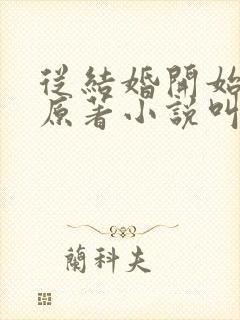 從結婚開始
原著小說叫
蘭科夫